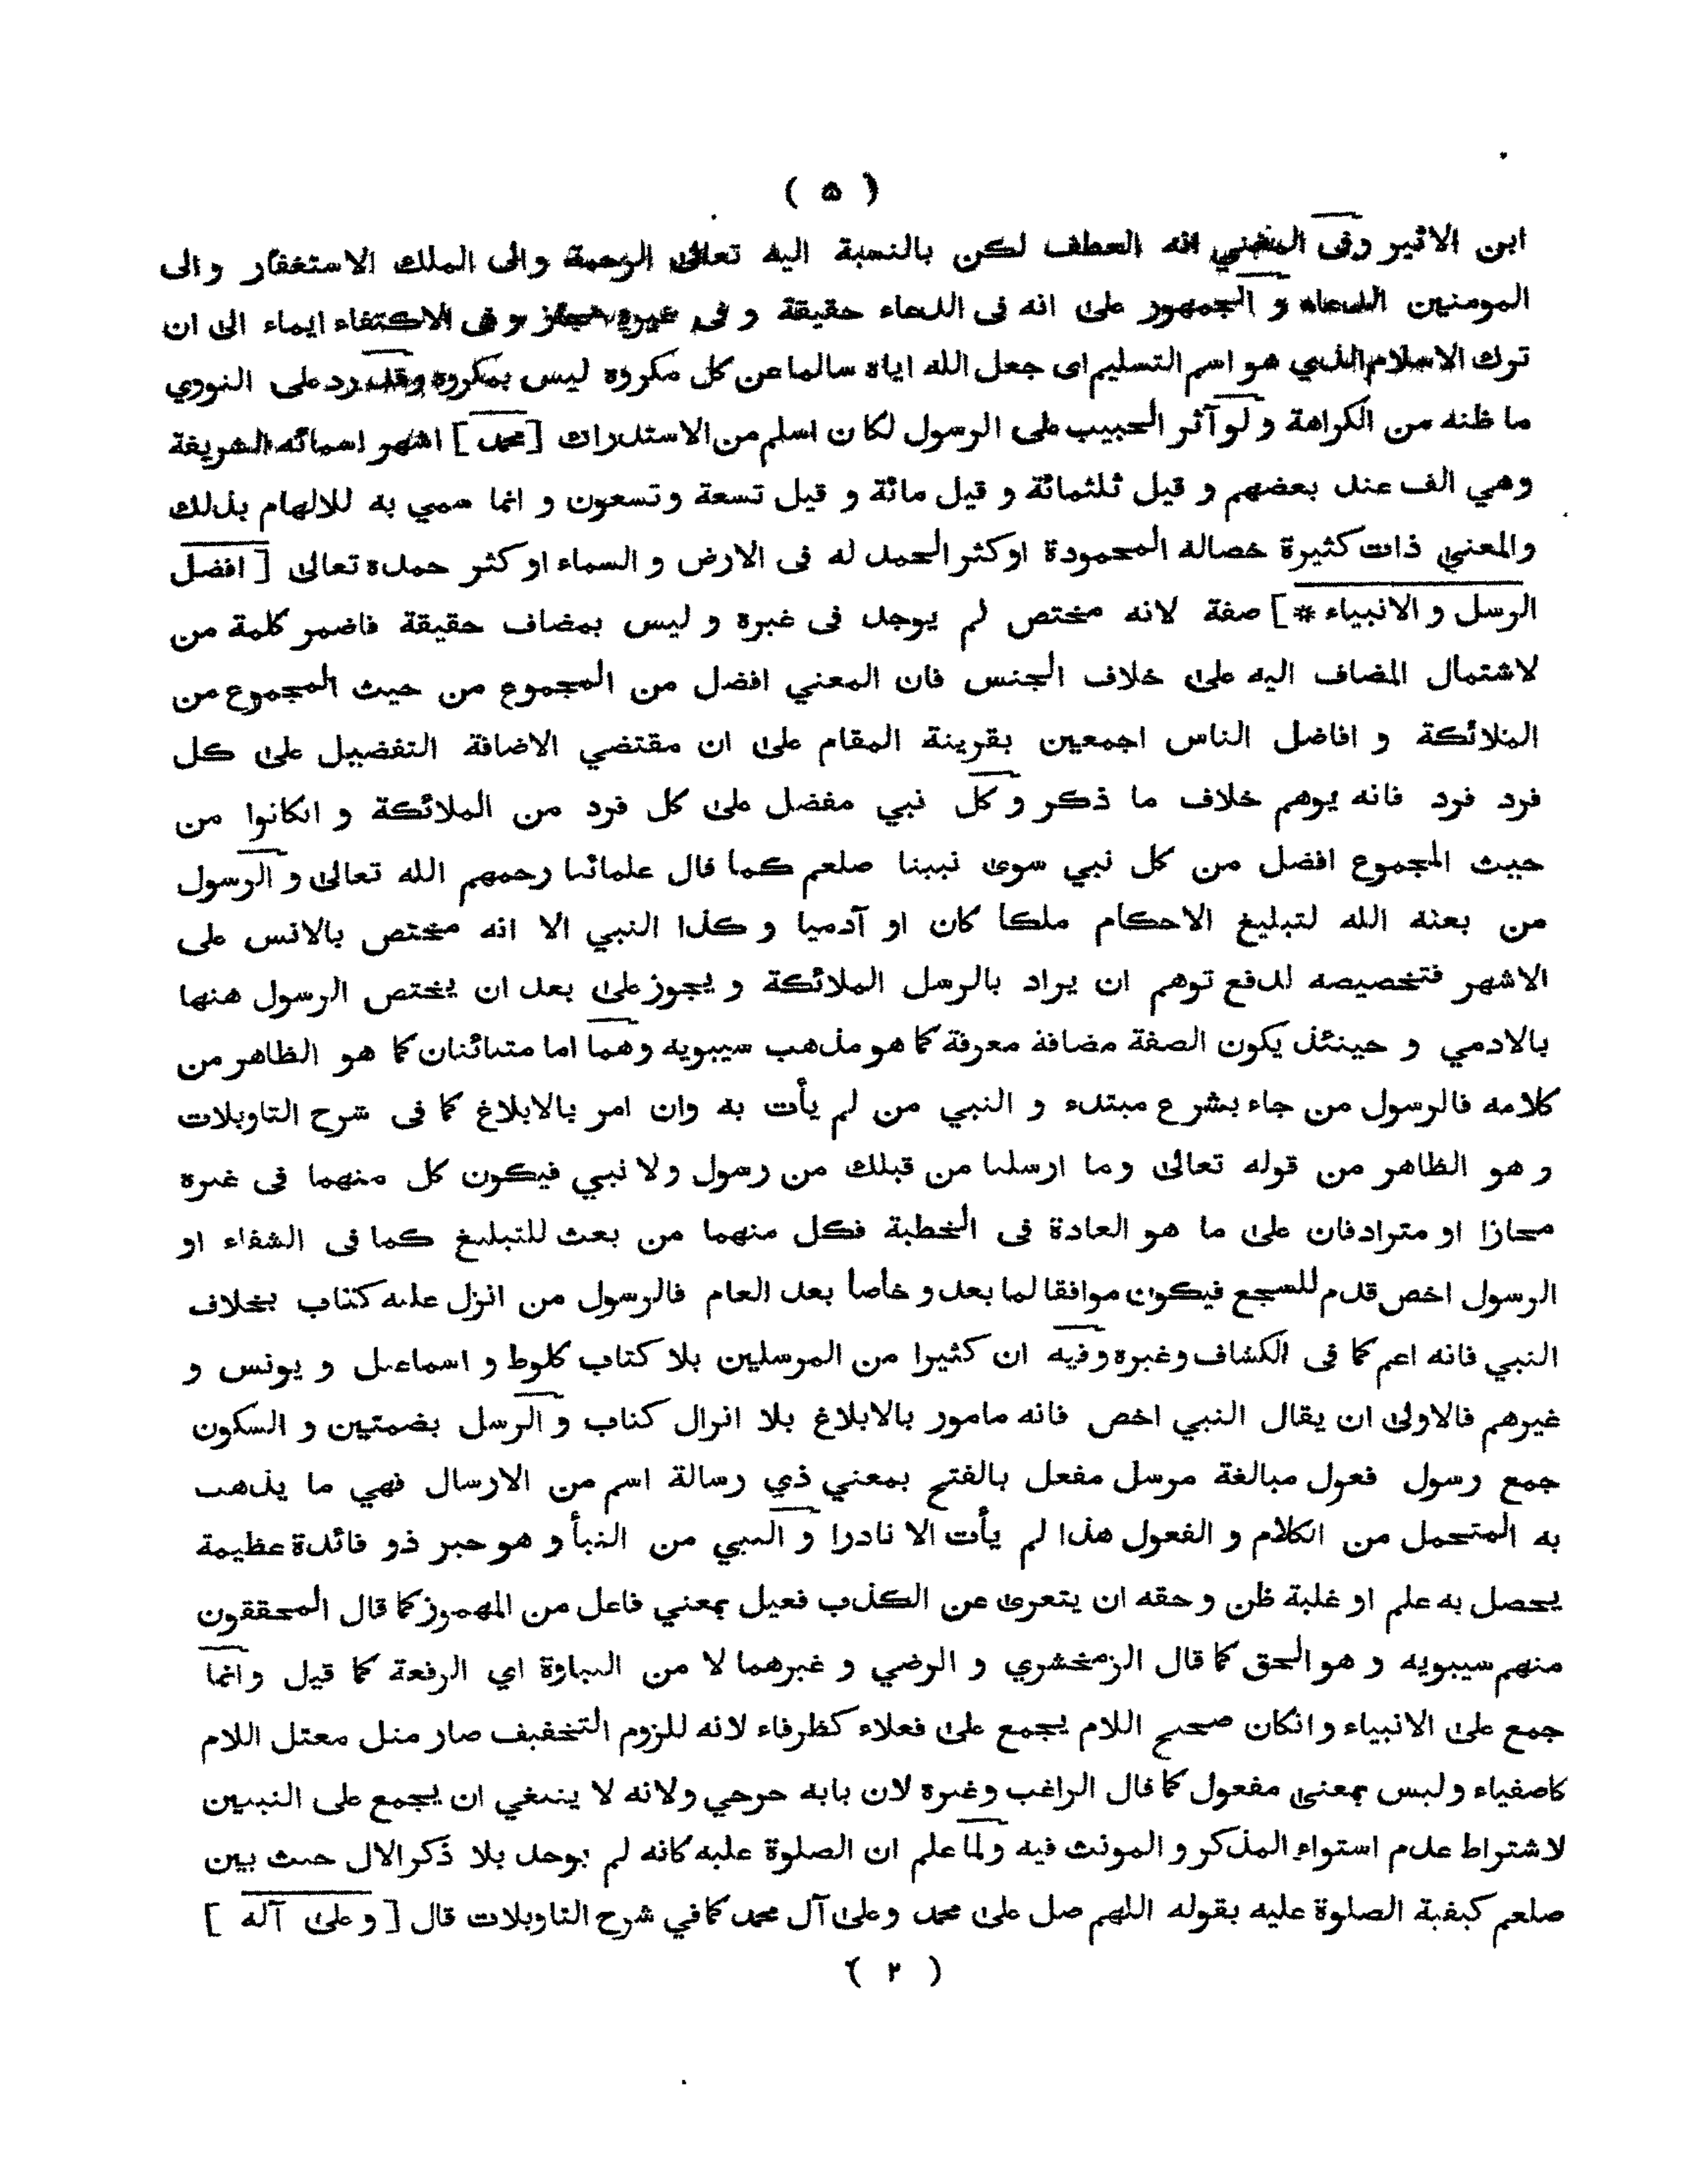 ( ۵ )
ابن الاثير وفى المغني انه العطف لكن بالنسبة اليه تعالىٰ الرحمة والى الملك الاستغفار والى
المومنين الدعاء و الجمهور علىٰ انه فى الدعاء حقيقة و فى غيره مجاز و فى الاكتفاء ايماء الىٰ ان
ترك الاسلام الذي هو اسم التسليم اى جعل الله اياه سالما عن كل مكروه ليس بمكروه وقد رد على النووي
ما ظنه من الكراهة و لو آثر الحبيب على الرسول لكان اسلم من الاستدراك [ محمد ] اشهر اسمائه الشريفة
وهي الف عند بعضهم و قيل ثلثمائة و قيل مائة و قيل تسعة وتسعون و انما سمي به للالهام بذلك
والمعني ذات كثيرة خصاله المحمودة او كثر الحمد له فى الارض و السماء او كثر حمده تعالىٰ [ افضل
الرسل و الانبياء * ] صفة لانه مختص لم يوجد فى غيره و ليس بمضاف حقيقة فاضمر كلمة من
لاشتمال المضاف اليه علىٰ خلاف الجنس فان المعني افضل من المجموع من حيث المجموع من
الملائكة و افاضل الناس اجمعين بقرينة المقام علىٰ ان مقتضي الاضافة التفضيل علىٰ كل
فرد فرد فانه يوهم خلاف ما ذكر و كل نبي مفضل علىٰ كل فرد من الملائكة و انكانوا من
حيث المجموع افضل من كل نبي سوىٰ نبينا صلعم كما قال علمائنا رحمهم الله تعالىٰ و الرسول
من بعثه الله لتبليغ الاحكام ملكا كان او آدميا و كذا النبي الا انه مختص بالانس على
الاشهر فتخصيصه لدفع توهم ان يراد بالرسل الملائكة و يجوز علىٰ بعد ان يختص الرسول هنها
بالادمي و حينئذ يكون الصفة مضافة معرفة كما هو مذهب سيبويه وهما اما متبائنان كما هو الظاهر من
كلامه فالرسول من جاء بشرع مبتدء و النبي من لم يأت به وان امر بالابلاغ كما فى شرح التاويلات
و هو الظاهر من قوله تعالىٰ وما ارسلنا من قبلك من رسول ولا نبي فيكون كل منهما فى غيره
مجازا او مترادفان علىٰ ما هو العادة فى الخطبة فكل منهما من بعث للتبليغ كما فى الشفاء او
الرسول اخص قدم للسجع فيكون موافقا لما بعد و خاصا بعد العام فالرسول من انزل عليه كتاب بخلاف
النبي فانه اعم كما فى الكشاف وغيره وفيه ان كثيرا من المرسلين بلا كتاب كلوط و اسماعيل و يونس و
غيرهم فالاولىٰ ان يقال النبي اخص فانه مامور بالابلاغ بلا انزال كتاب و الرسل بضمتين و السكون
جمع رسول فعول مبالغة مرسل مفعل بالفتح بمعني ذي رسالة اسم من الارسال فهي ما يذهب
به المتحمل من الكلام و الفعول هذا لم يأت الا نادرا و النبي من النبأ و هو خبر ذو فائدة عظيمة
يحصل به علم او غلبة ظن و حقه ان يتعرىٰ عن الكذب فعيل بمعني فاعل من المهموز كما قال المحققون
منهم سيبويه و هو الحق كما قال الزمخشري و الرضي و غيرهما لا من النباوة اي الرفعة كما قيل وانما
جمع علىٰ الانبياء و انكان صحيح اللام يجمع علىٰ فعلاء كظرفاء لانه للزوم التخفيف صار مثل معتل اللام
كاصفياء وليس بمعنىٰ مفعول كما قال الراغب وغيره لان بابه جرحي ولانه لا ينبغي ان يجمع على النبيين
لاشتراط عدم استواء المذكر و المونث فيه ولما علم ان الصلوة عليه كانه لم يوجد بلا ذكر الال حيث بين
صلعم كيفية الصلوة عليه بقوله اللهم صل علىٰ محمد وعلىٰ آل محمد كما في شرح التاويلات قال [ و علىٰ آله ]
( ٢ )